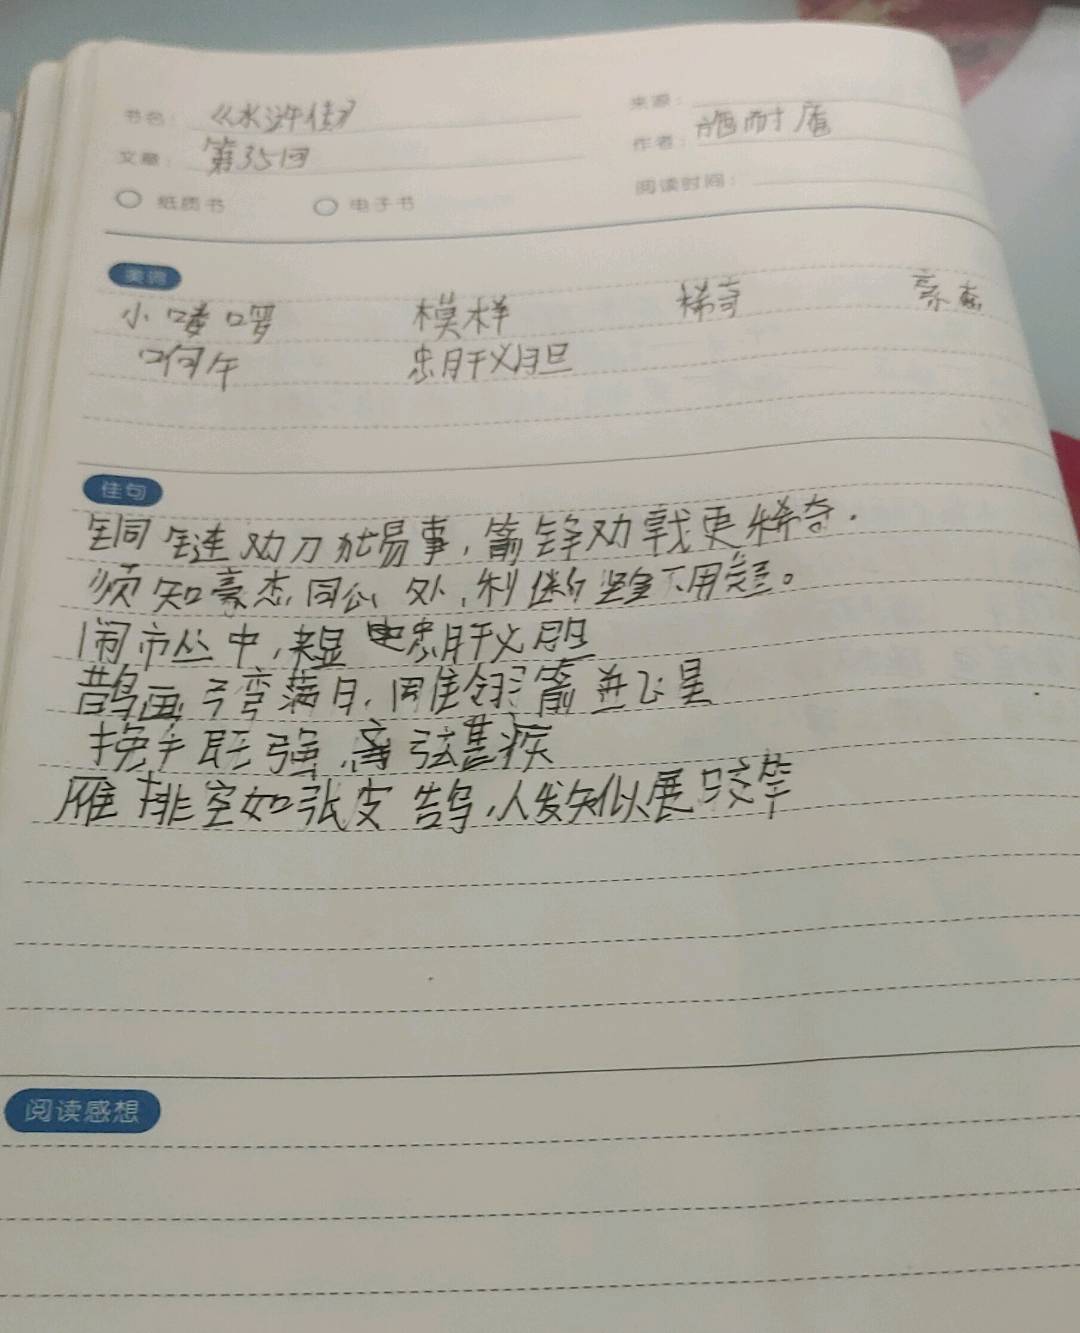 书名： 《水浒传》 来源：
文章： 第35回 作者： 施耐庵
纸质书 电子书 阅读时间：
美词
小喽啰 模样 稀奇 豪杰
晌午 忠肝义胆
佳句
铜链劝刀犹易事，箭锋劝戟更稀奇.
须知豪杰同心处，利断坚金不用疑。
闹市丛中，来显忠肝义胆
鹊画弓弯满月，雕翎箭迸飞星
挽手既强，离弦甚疾
雁排空如张皮鹄，人发矢似展胶竿
阅读感想